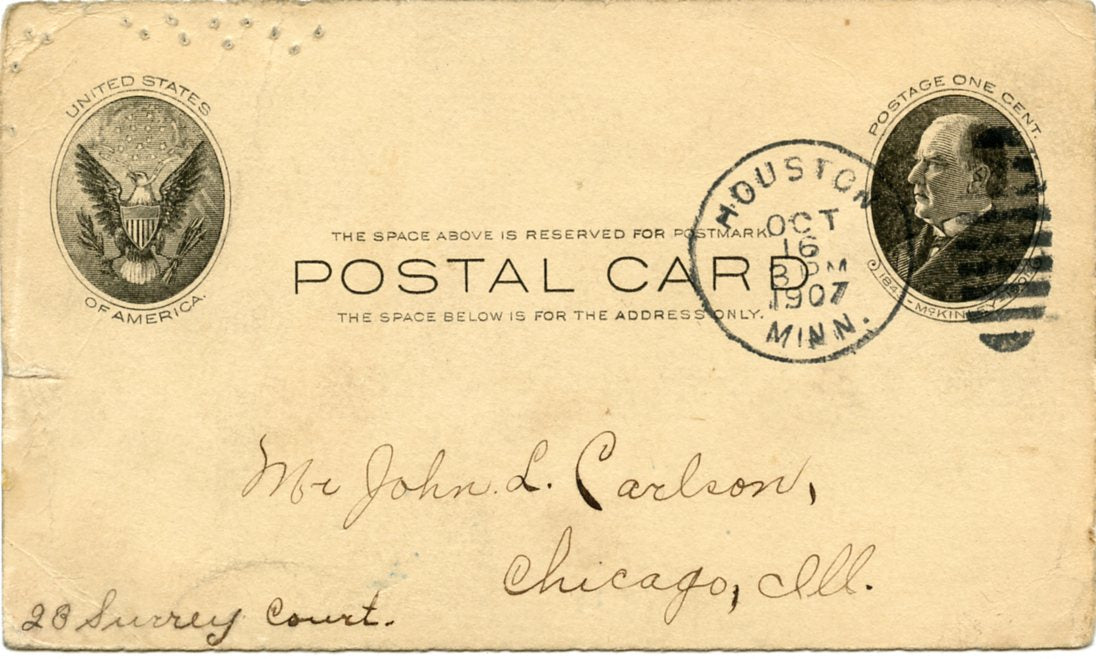 UNITED STATES
OF AMERICA.
POSTAGE ONE CENT.
THE SPACE ABOVE IS RESERVED FOR POSTMARK.
POSTAL CARD
THE SPACE BELOW IS FOR THE ADDRESS ONLY.
HOUSTON
OCT
16
3 PM
1907
MINN.
Mr John L. Carlson,
Chicago, Ill.
23 Surrey Court.